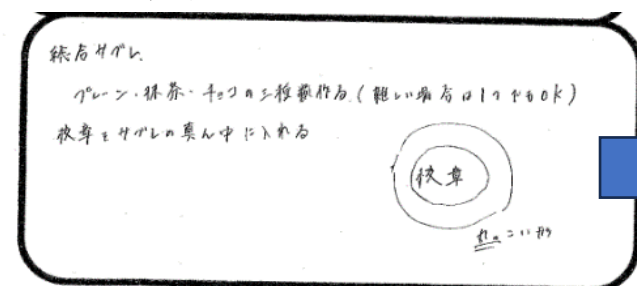 統合サブレ
プレーン・抹茶・チョコの三種類作る(難しい場合は1つでもOK)
校章をサブレの真ん中に入れる
校章
丸っこい形